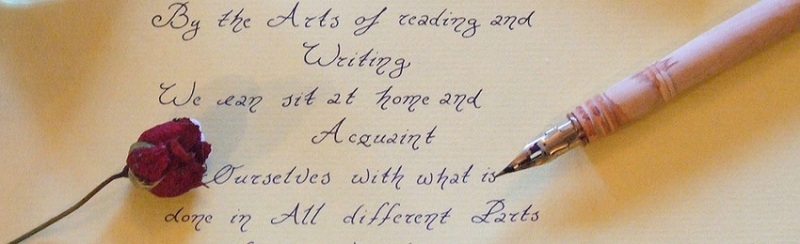 By the Arts of reading and
Writing
We can sit at home and
Acquaint
Ourselves with what is
done in All different Parts